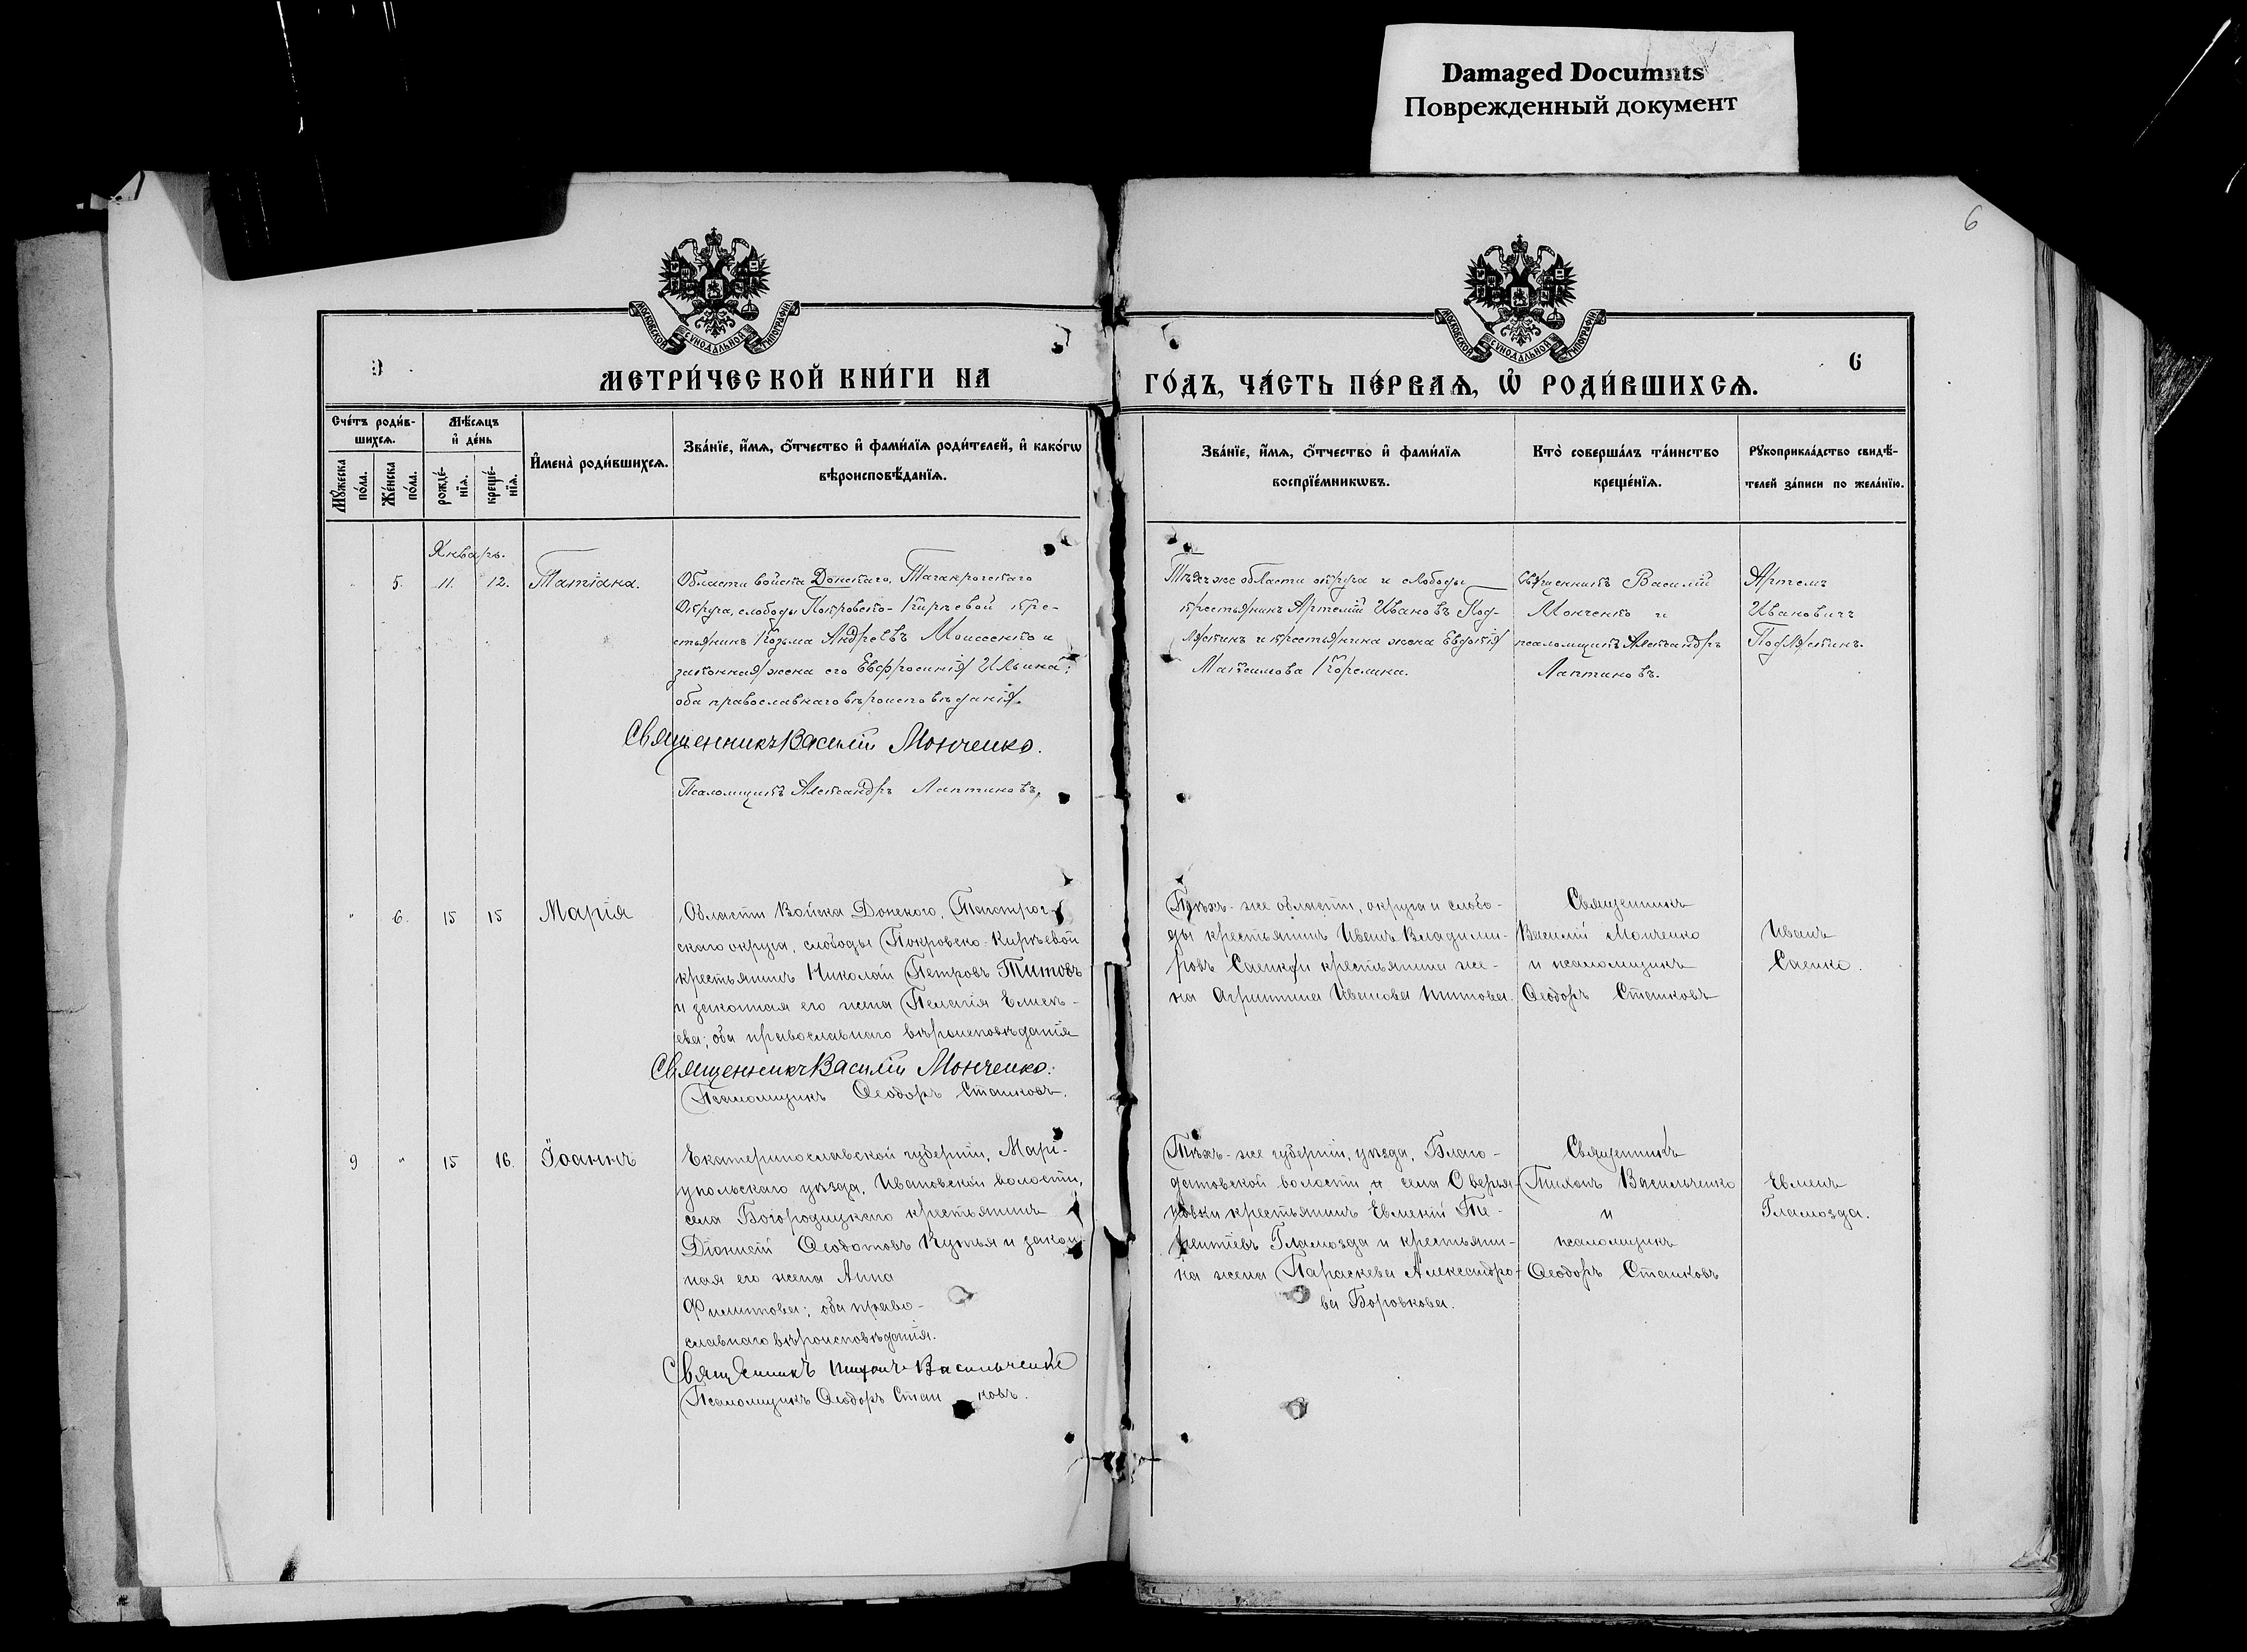 Damaged Documnts
Поврежденный документ
6
МОСКОВСКОЙ СѴНОДАЛЬНОЙ ТИПОГРАФІИ
МОСКОВСКОЙ СѴНОДАЛЬНОЙ ТИПОГРАФІИ
МЕТРИ́ЧЕСКОЙ КНИ́ГИ НА
ГО́ДЪ, ЧА́СТЬ ПЕ́РВАѦ, Ѡ҆ РОДИ́ВШИХСѦ.
6
Сче́тъ роди́в-
шихсѧ.
Мꙋ́жеска по́ла.
Же́нска по́ла.
Мѣ́сѧцъ
и҆ де́нь
рожде́-
нїѧ.
креще́-
нїѧ.
И҆мена̀ роди́вшихсѧ.
Зва́нїе, и҆́мѧ, ѻ҆́тчество и҆ фами́лїѧ роди́телей, и҆ како́гѡ
вѣроисповѣ́данїѧ.
Зва́нїе, и҆́мѧ, ѻ҆́тчество и҆ фами́лїѧ
воспрїе́мникѡвъ.
Кто̀ соверша́лъ та́инство
креще́нїѧ.
Рꙋкоприкла́дство свидѣ́-
телей за́писи по жела́нїю.
Январь.
" 5. 11. 12. Татіана.
Области войска Донскаго, Таганрогскаго
Округа, слободы Покровско-Кирѣевой кре-
стьянинъ Козьма Андреевъ Моисеенко и
законная жена его Евфросинія Ильина;
оба православнаго вѣроисповѣданія.
Священникъ Василій Монченко.
Псаломщикъ Александръ Лаптиновъ,
Тѣхъ же области округа и слободы
крестьянинъ Артемій Ивановъ Под-
лятинъ и крестьянина жена Евдокія
Максимова Корелина.
Священникъ Василій
Монченко и
псаломщикъ Александръ
Лаптиновъ.
Артемъ
Ивановичъ
Подлятинъ.
" 6. 15 15 Марія
Области Войска Донского, Таганрог-
скаго округа, слободы Покровско-Кирѣевой
крестьянинъ Николай Петровъ Титовъ
и законная его жена Пелагія Елисѣ-
ева; оба православнаго вѣроисповѣданія
Священникъ Василій Мончелко.
Псаломщикъ Ѳеодоръ Сташковъ.
Тѣхъ-же области, округа и слобо-
ды крестьянинъ Иванъ Владими-
ровъ Саенко и крестьянина же-
на Агриппина Иванова Титова.
Священникъ
Василій Мончелко
и псаломщикъ
Ѳеодоръ Сташковъ
Иванъ
Саенко.
9 " 15 16. Іоаннъ
Екатеринославской губерніи, Марі-
упольскаго уѣзда, Ивановской волости,
села Богородицкаго крестьянинъ
Діонисій Ѳеодотовъ Кутья и закон
ная его жена Анна
Филиппова; оба право-
славнаго вѣроисповѣданія.
Священникъ Тихонъ Васильченко
Псаломщикъ Ѳеодоръ Сташ ковъ.
Тѣхъ-же губерніи, уѣзда, Благо-
датовской волости и села Оверья-
новки крестьянинъ Евменій Те-
рентіевъ Гламозда и крестьяни-
на жена Параскева Александро-
ва Боровкова.
Священникъ
Тихонъ Васильченко
и
псаломщикъ
Ѳеодоръ Сташковъ
Евменъ
Гламозда.